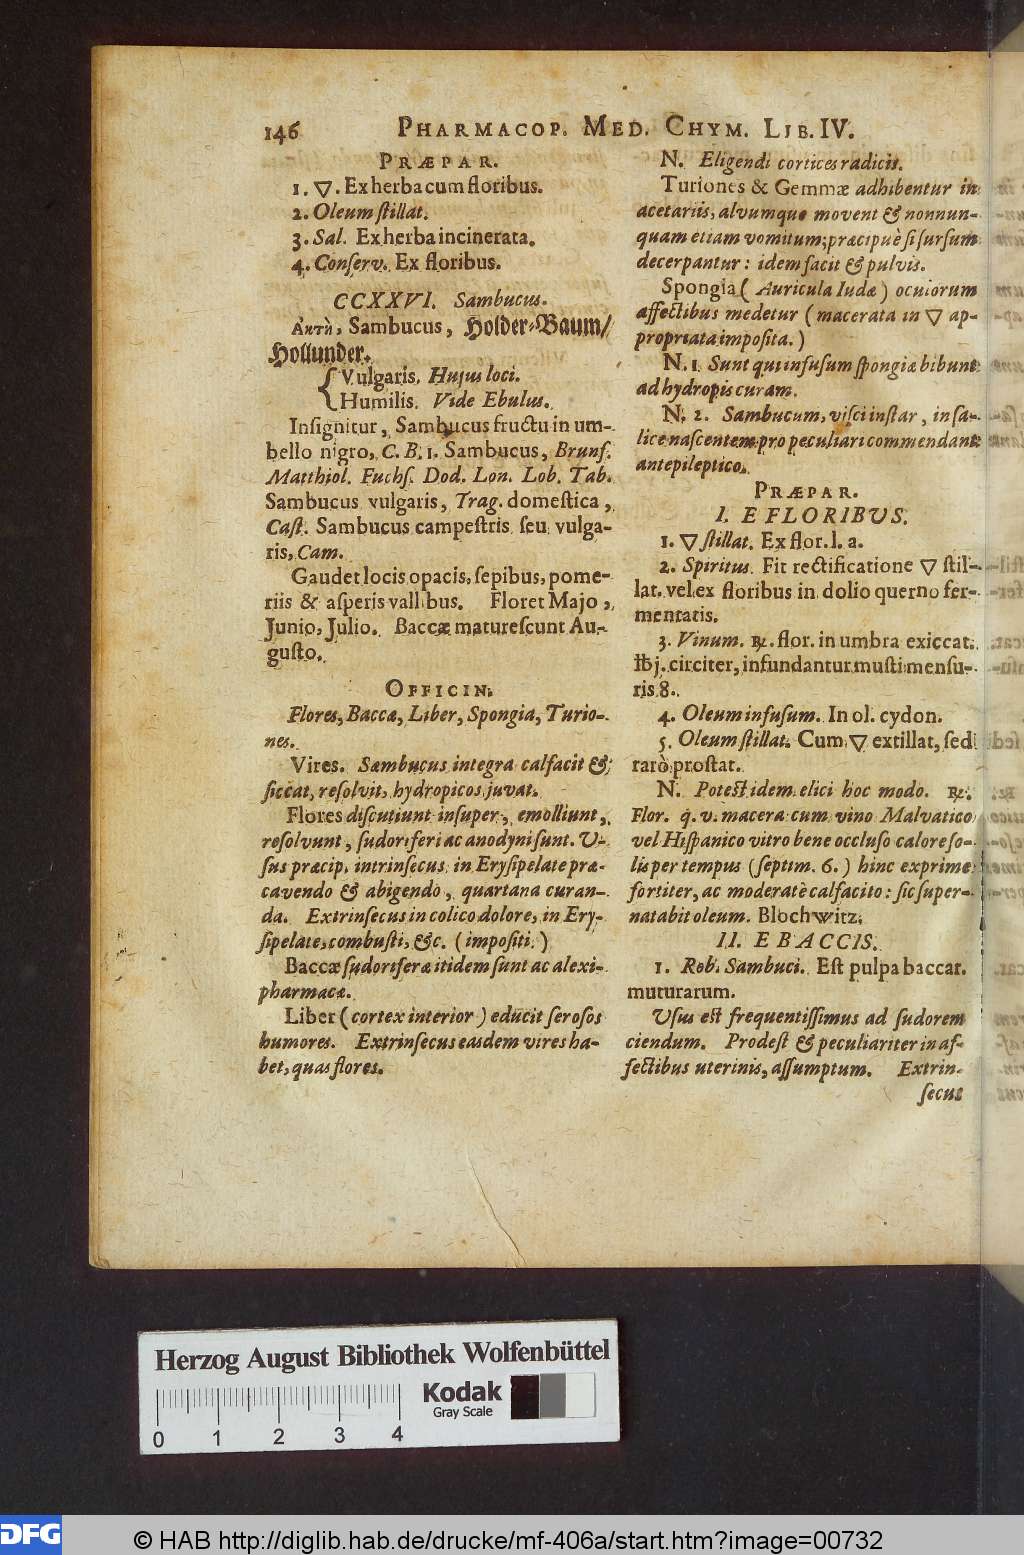 146 PHARMACOP. MED. CHYM. LIB. IV.
PRÆPAR.
1. ▽. Ex herba cum floribus.
2. Oleum ſtillat.
3. Sal. Ex herba incinerata.
4. Conſerv. Ex floribus.
CCXXVI. Sambucus.
Ἀκτὴ, Sambucus, Holder-Baum/
Hollunder.
{ Vulgaris. Hujus loci.
Humilis. Vide Ebulus.
Inſignitur, Sambucus fructu in um-
bello nigro, C. B. 1. Sambucus, Brunf.
Matthiol. Fuchſ. Dod. Lon. Lob. Tab.
Sambucus vulgaris, Trag. domeſtica,
Caſt. Sambucus campeſtris ſeu vulga-
ris, Cam.
Gaudet locis opacis, ſepibus, pome-
riis & aſperis vallibus. Floret Majo,
Junio, Julio. Baccæ matureſcunt Au-
guſto.
OFFICIN.
Flores, Baccæ, Liber, Spongia, Turio-
nes.
Vires. Sambucus integra calfacit &
ſiccat, reſolvit, hydropicos juvat.
Flores diſcutiunt inſuper, emolliunt,
reſolvunt, ſudoriferi ac anodyni ſunt. U-
ſus præcip. intrinſecus in Eryſipelate præ-
cavendo & abigendo, quartana curan-
da. Extrinſecus in colico dolore, in Ery-
ſipelate, combuſti, &c. (impoſiti.)
Baccæ ſudoriferæ itidem ſunt ac alexi-
pharmacæ.
Liber (cortex interior) educit ſeroſos
humores. Extrinſecus easdem vires ha-
bet, quas flores.
N. Eligendi cortices radicis.
Turiones & Gemmæ adhibentur in
acetariis, alvumque movent & nonnun-
quam etiam vomitum; præcipuè ſi ſurſum
decerpantur: idem facit & pulvis.
Spongia (Auricula Iudæ) oculorum
affectibus medetur (macerata in ▽ ap-
propriata impoſita.)
N. 1. Sunt qui infuſum ſpongiæ bibunt
ad hydropis curam.
N. 2. Sambucum, viſci inſtar, in ſa-
lice naſcentem pro peculiari commendant
antepileptico.
PRÆPAR.
I. E FLORIBUS.
1. ▽ ſtillat. Ex flor. l. a.
2. Spiritus. Fit rectificatione ▽ ſtil-
lat. vel ex floribus in dolio querno fer-
mentatis.
3. Vinum. ℞. flor. in umbra exiccat.
℔j. circiter, infundantur muſti menſu-
ris 8.
4. Oleum infuſum. In ol. cydon.
5. Oleum ſtillat. Cum ▽ extillat, ſed
rarò proſtat.
N. Poteſt idem elici hoc modo. ℞.
Flor. q. v. macera cum vino Malvatico
vel Hiſpanico vitro bene occluſo calore ſo-
lis per tempus (ſeptim. 6.) hinc exprime
fortiter, ac moderatè calfacito: ſic ſuper-
natabit oleum. Blochwitz.
II. E BACCIS.
1. Rob. Sambuci. Eſt pulpa baccar.
muturarum.
Uſus eſt frequentiſſimus ad ſudorem
ciendum. Prodeſt & peculiariter in af-
fectibus uterinis, aſſumptum. Extrin-
ſecus
Herzog August Bibliothek Wolfenbüttel
Kodak
Gray Scale
0 1 2 3 4
DFG
© HAB http://diglib.hab.de/drucke/mf-406a/start.htm?image=00732